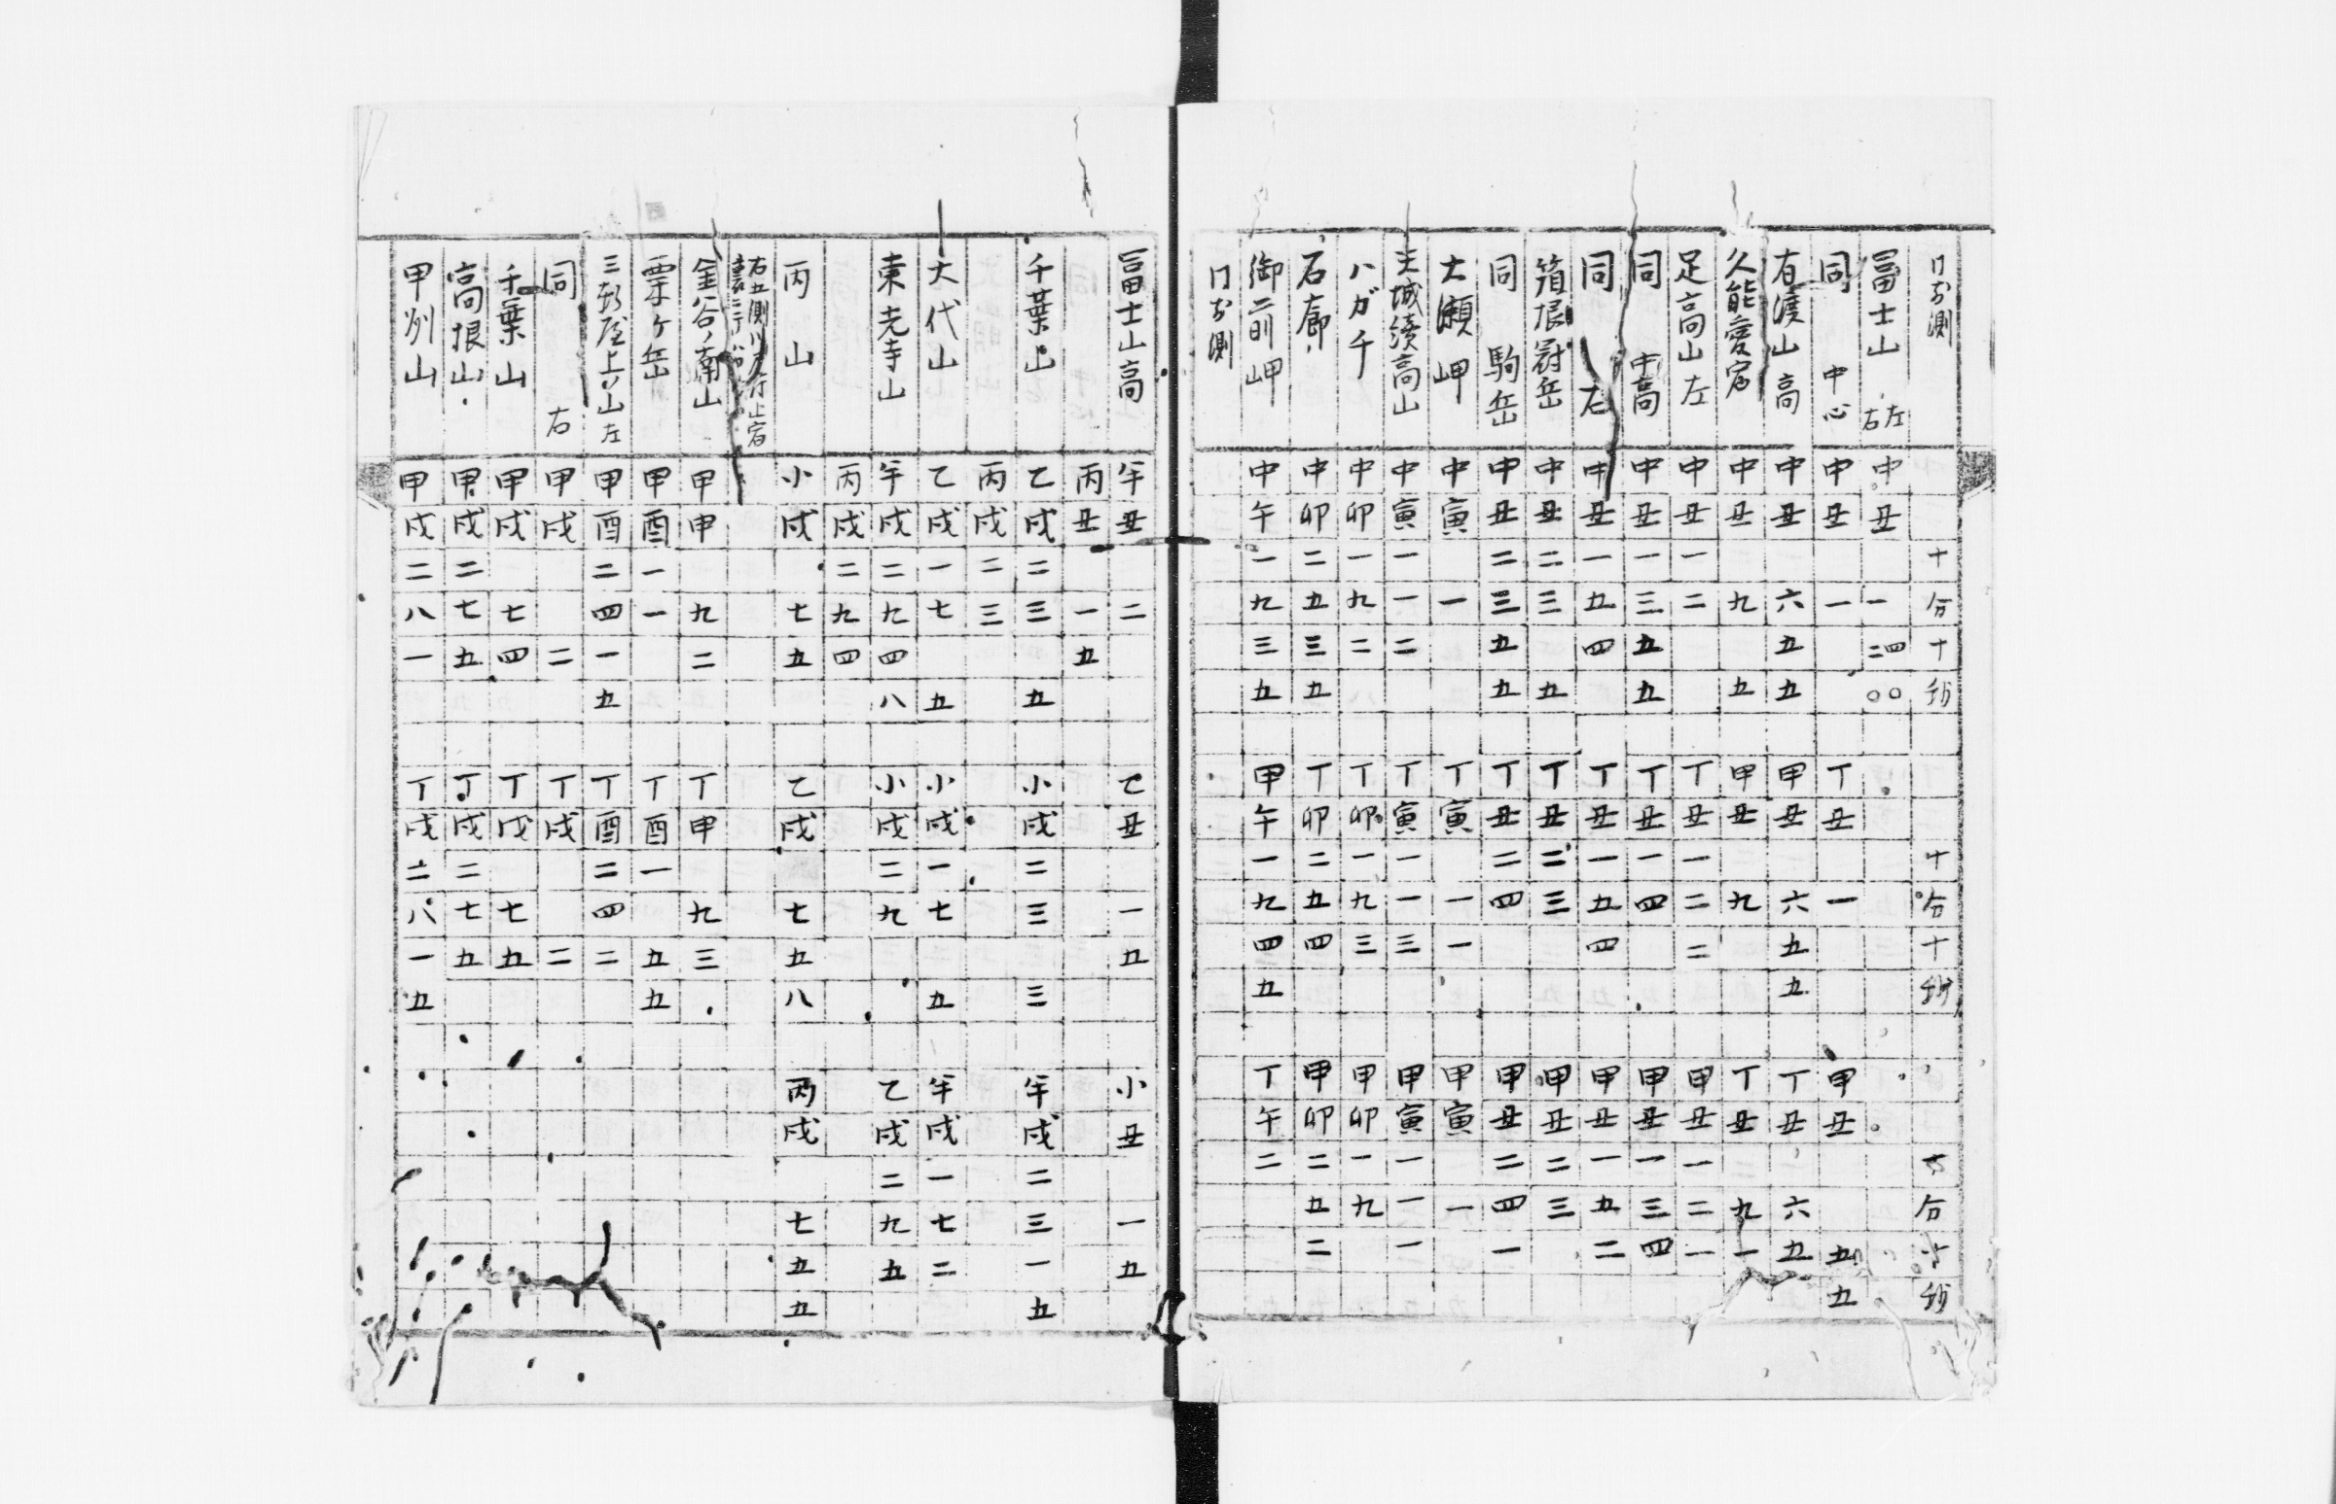 十分十秒 十分十秒 十分十秒
冨士山 左右 中丑 一 四〇 二〇
同 中心 中丑 一 丁丑 一 甲丑 五五
有渡山高 中丑 六五五 甲丑 六五五 丁丑 六五
久能愛宕 中丑 九 五 甲丑 九 丁丑 九一
足高山左 中丑一二 丁丑一二二 甲丑一二一
同 中高 中丑一三五五 丁丑一四 甲丑一三四
同 右 中丑一五四 丁丑一五四 甲丑一五二
箱根冠岳 中丑二三 五 丁丑二三 甲丑二三
同 駒岳 中丑二三五五 丁丑二四 甲丑二四一
大瀬岬 中寅 一 丁寅 一一 甲寅 一
天城続高山 中寅一一二 丁寅一一三 甲寅一一一
ハガチ 中卯一九二 丁卯一九三 甲卯一九
石廊 中卯二五三五 丁卯二五四 甲卯二五二
御前岬 中午一九三五 甲午一九四五 丁午二
冨士山高 午丑 二 乙丑 一五 小丑 一五
丙丑 一五
千葉山 乙戌二三 五 小戌二三 三 午戌二三一五
丙戌二三
大代山 乙戌一七 五 小戌一七 五 午戌一七二
東光寺山 午戌二九四八 小戌二九 乙戌二九五
丙戌二九四
丙山 小戌 七五 乙戌 七五八 丙戌 七五五
金谷ノ南山 甲申 九二 丁申 九三
粟ヶ岳 甲酉一一 丁酉一 五五
三軒屋上ノ山左 甲酉二四一五 丁酉二四二
同 右 甲戌 二 丁戌 二
千葉山 甲戌 七四 丁戌 七五
高根山 甲戌二七五 丁戌二七五
甲州山 甲戌二八一 丁戌二八一五